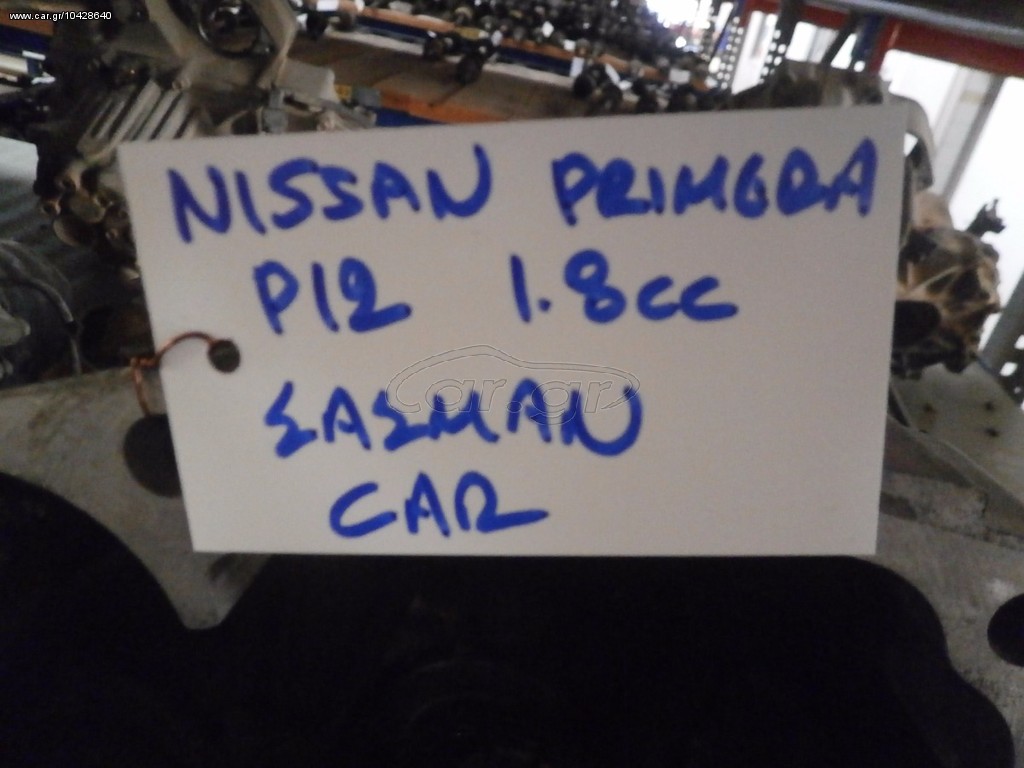 www.car.gr/10428640
NISSAN PRIMERA
P12 1.8cc
ΣΑΣΜΑΝ
car.gr
CAR